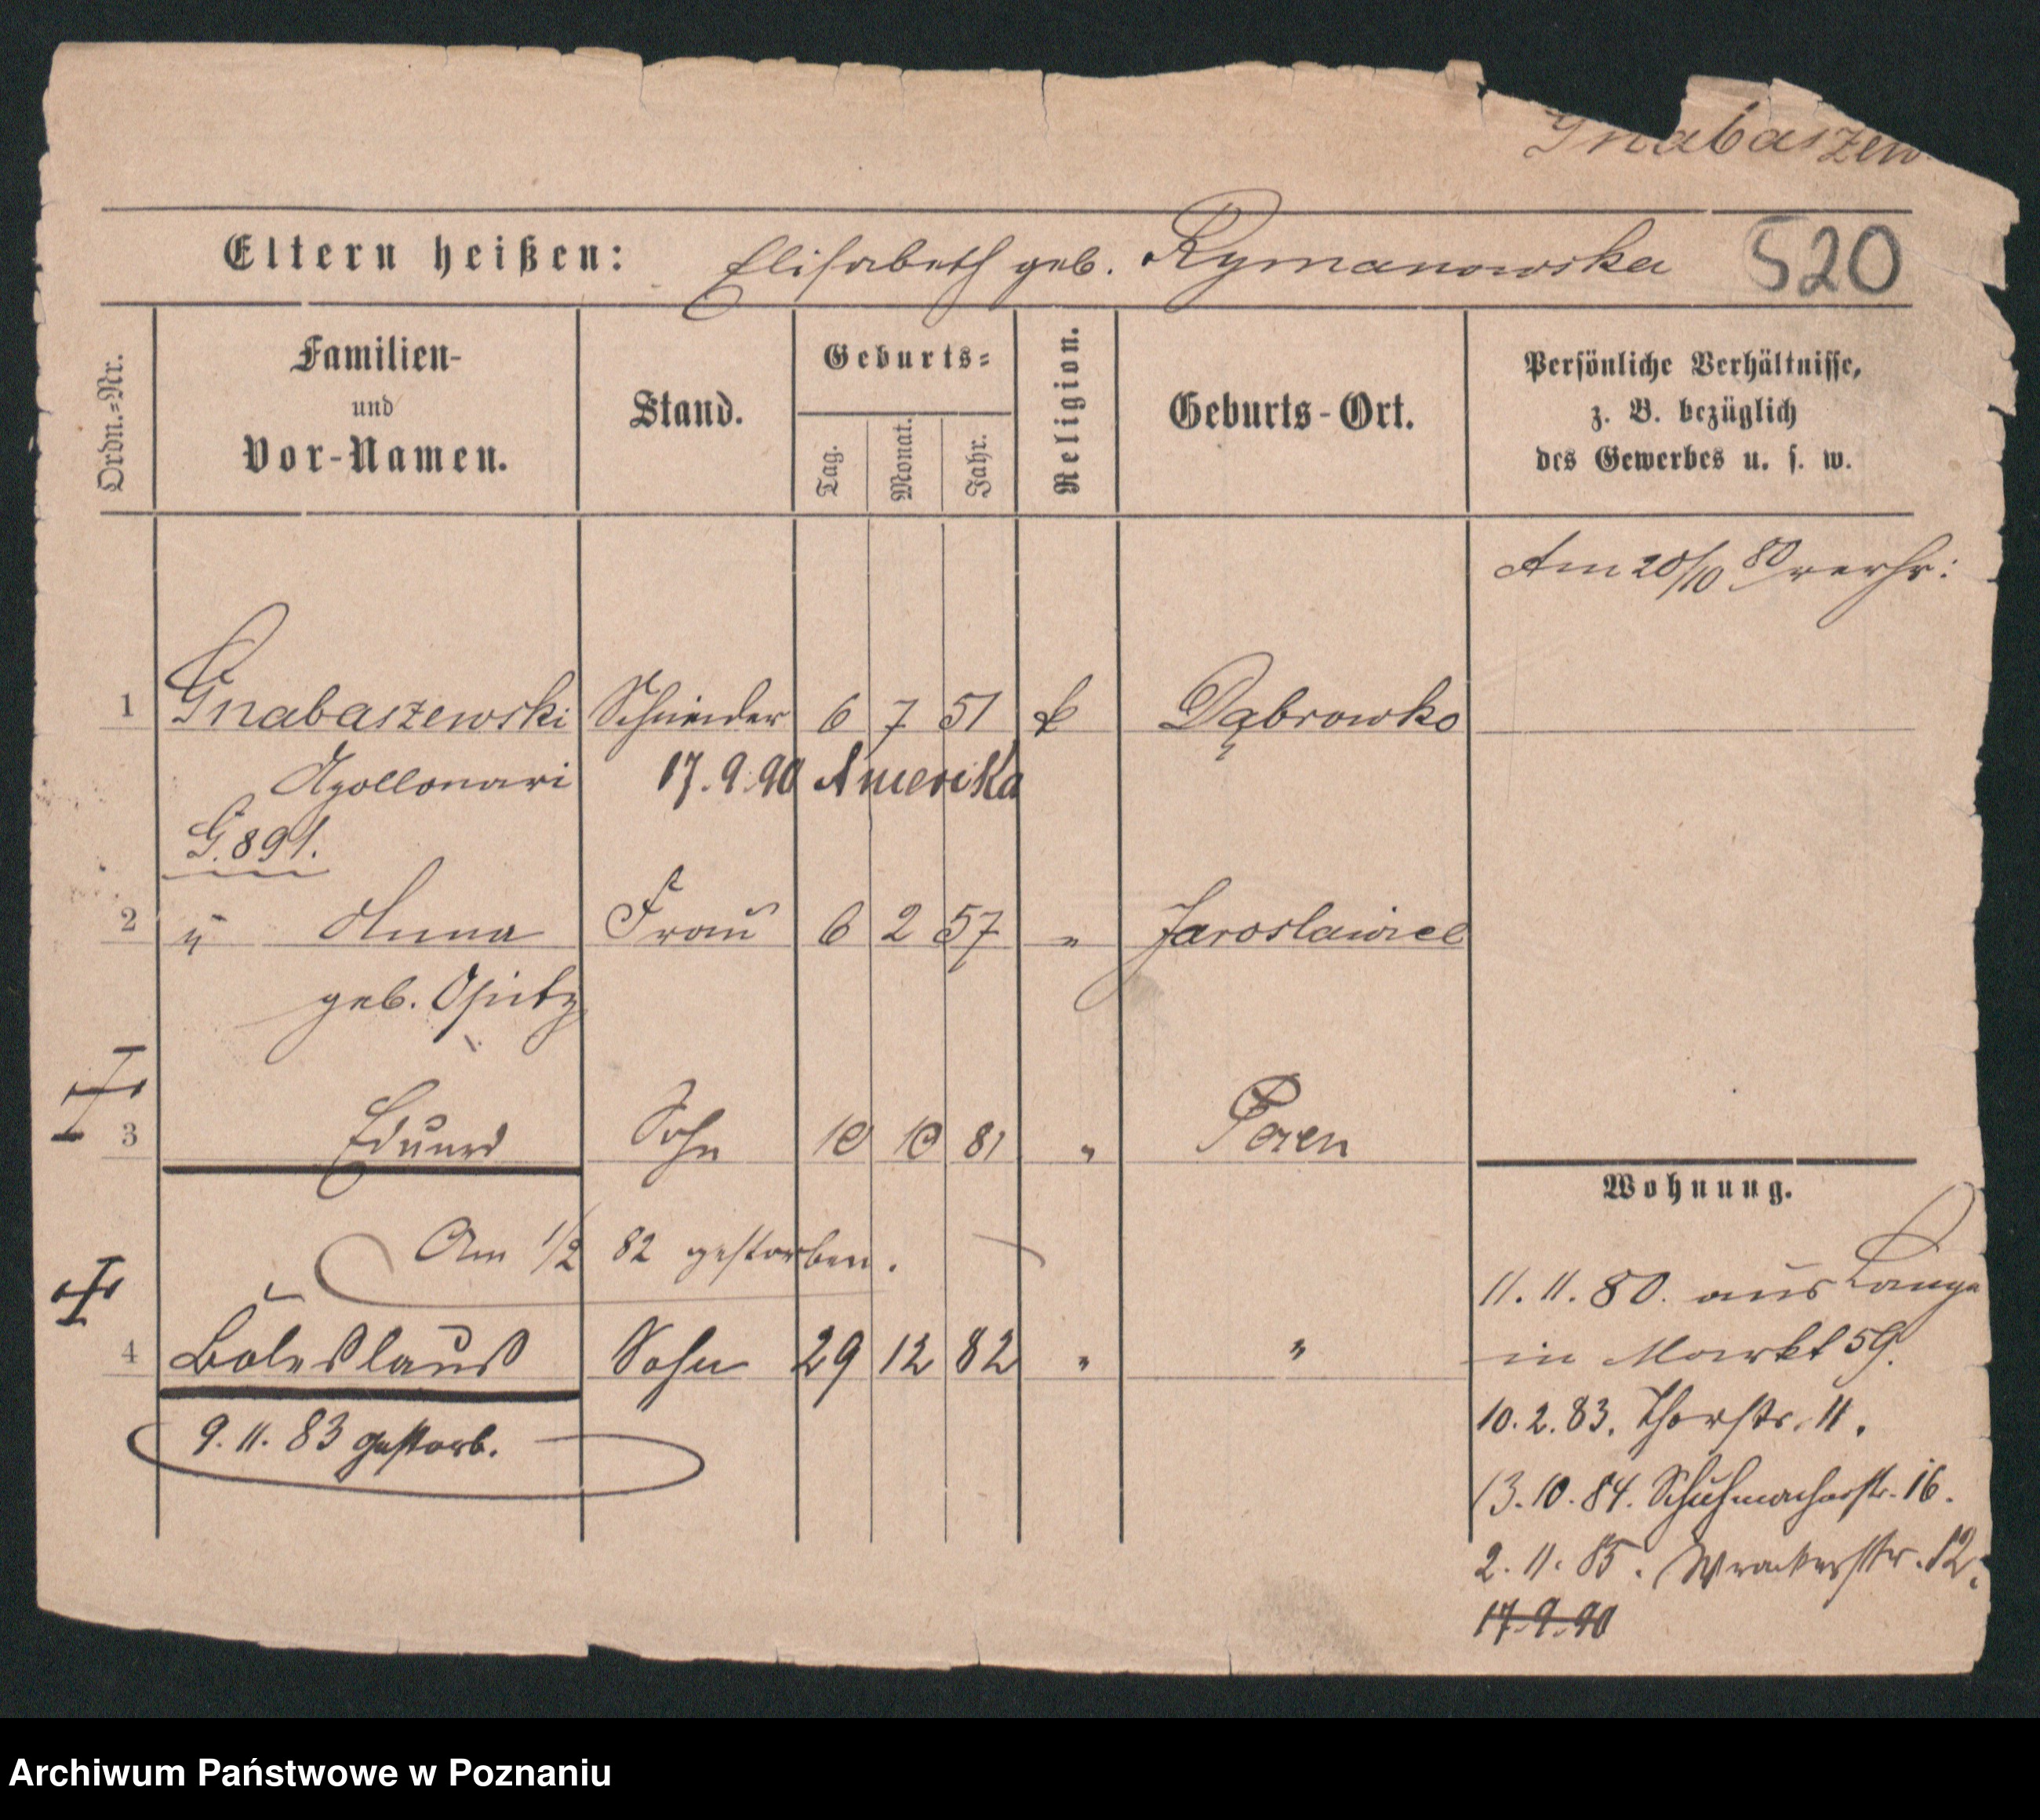 Gnabaszew
Eltern heißen: Elisabeth geb. Rymanowska 520
Ordn.=Nr. Familien- und Vor-Namen. Stand. Geburts= Tag. Monat. Jahr. Religion. Geburts-Ort. Persönliche Verhältnisse, z. B. bezüglich des Gewerbes u. s. w.
Am 20/10 80 verhr:
1 Gnabaszewski Schneider 6 7 51 k Dąbrowko
Apollonari 17.9.90 Amerika
G.891.
2 " Anna Frau 6 2 57 " Jaroslawiec
geb. Opitz
3 Eduard Sohn 10 10 81 " Posen
Wohnung.
Am 1/2 82 gestorben.
11. 11. 80. aus Lange
4 Boleslaus Sohn 29 12 82 " "
in Markt 59.
10. 2. 83. Thorstr. 11.
9. 11. 83 gestorb.
13. 10. 84. Schuhmacherstr. 16.
2. 11. 85. Wronkerstr. 12.
17.9.90
Archiwum Państwowe w Poznaniu